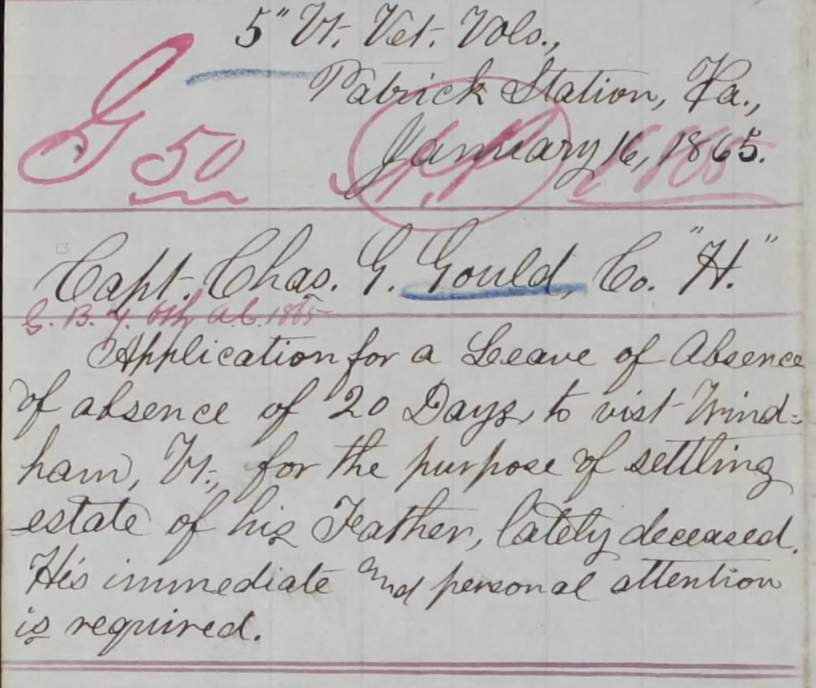 5" Vt. Vet. Vols.,
Patrick Station, Va.,
G 50
January 16, 1865.
1865
Capt. Chas. G. Gould, Co. "H."
6th A.C. 1865
Application for a Leave of Absence
of absence of 20 Days, to vist Wind=
ham, Vt., for the purpose of settling
estate of his Feather, lately deceased.
His immediate and personal attention
is required.